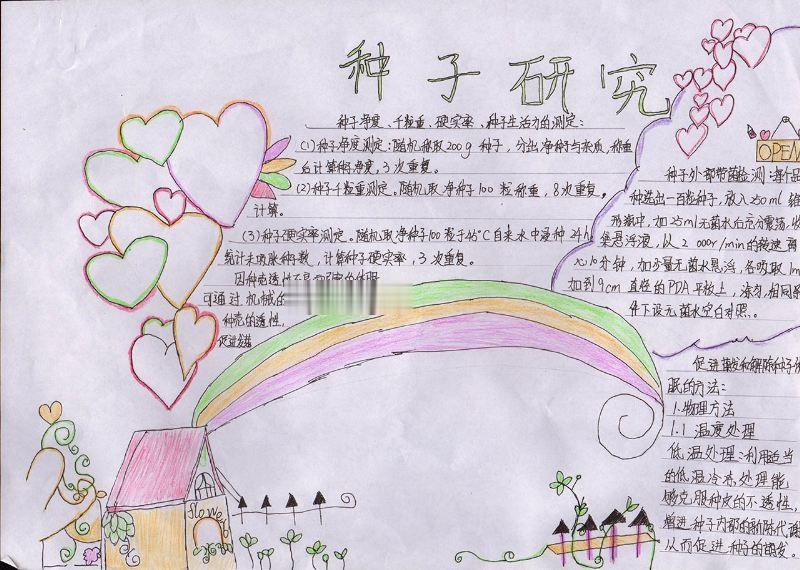 种子研究
种子净度、千粒重、硬实率、种子生活力的测定：
(1)种子净度测定：随机称取200g 种子，分出净种子与杂质，称重
后计算种子净度，3次重复。
(2)种子千粒重测定。随机取净种子100粒称重，8次重复。
计算。
(3)种子硬实率测定。随机取净种子100粒于45°C自来水中浸种24h
统计未吸胀种子数，计算种子硬实率，3次重复。
因种壳透性不良
可通过机械
种壳的透性，
促进发芽
OPEN
种子外部带菌检测：每个品
种选出一百粒种子，放入250ml 锥
形瓶中，加25ml无菌水充分震荡，收
集悬浮液，以2000r/min的转速离
心10分钟，加少量无菌水悬浮，各吸取1m
加到9cm直径的PDA平板上，涂匀，相同条
件下设无菌水空白对照。
促进萌发和解除种子休
眠的方法：
1.物理方法
1.1 温度处理
低温处理：利用适当
的低温冷冻处理能
够克服种皮的不透性，
增进种子内部的新陈代谢
从而促进种子的萌发。
flower